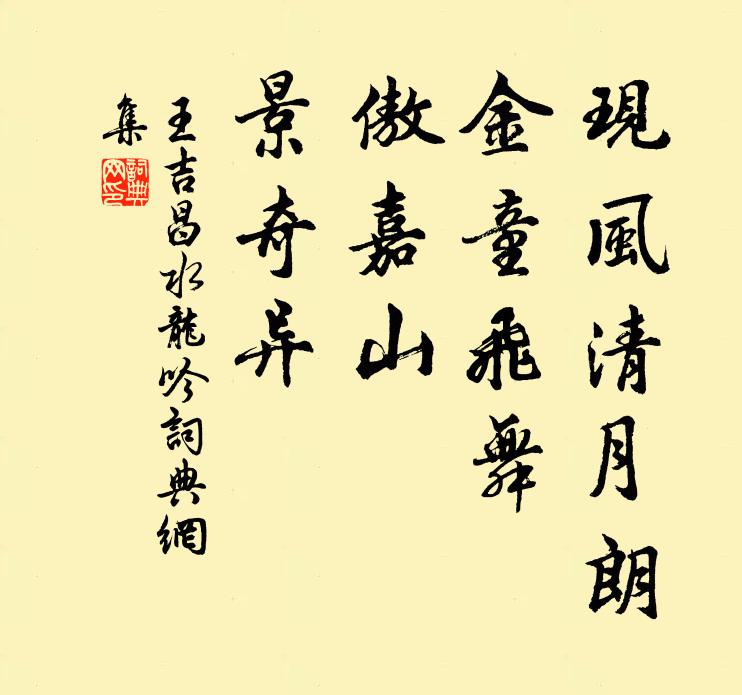 現風清月朗
金童飛舞
傲嘉山
景奇异
王吉昌水龍吟詞典網
集
詞典
网印